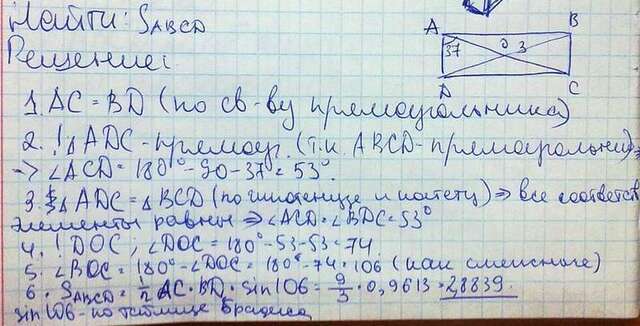 Найти: SABCD
Решение:
A B
37 O 3
D C
1. AC = BD (по св-ву прямоугольника)
2. ! △ ADC - прямоуг. (т.к. ABCD - прямоугольник) ⇒
⇒ ∠ACD = 180° - 90 - 37 = 53°.
3. △ ADC = △ BCD (по гипотенузе и катету) ⇒ все соответств
элементы равны ⇒ ∠ACD = ∠BDC = 53°
4. ! DOC; ∠DOC = 180° - 53 - 53 = 74
5. ∠BOC = 180° - ∠DOC = 180° - 74 = 106 (как смежные)
6. SABCD = 1/2 AC · BD · sin106 = 9/3 · 0,9613 = 2,8839.
sin106 - по таблице Брадиса